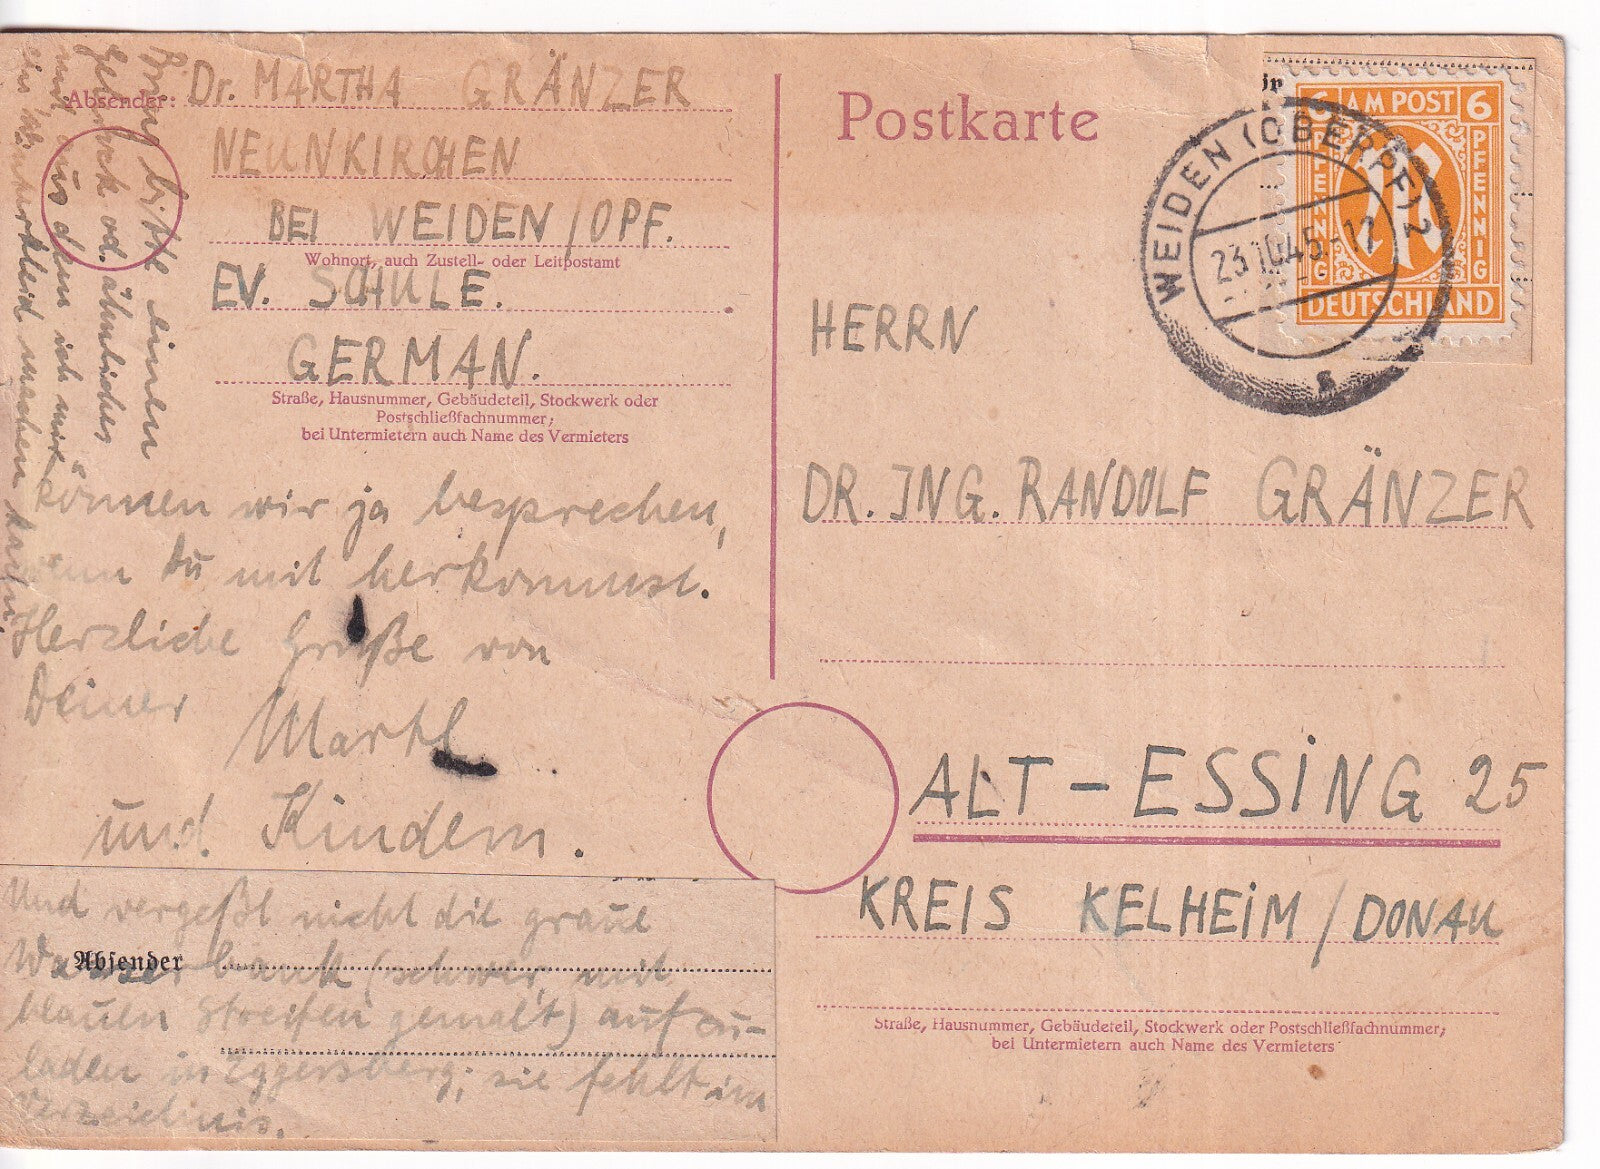 Absender: Dr. MARTHA GRÄNZER
NEUNKIRCHEN
BEI WEIDEN/OPF.
Wohnort, auch Zustell- oder Leitpostamt
EV. SCHULE.
GERMAN.
Straße, Hausnummer, Gebäudeteil, Stockwerk oder
Postschließfachnummer;
bei Untermietern auch Name des Vermieters
können wir ja besprechen,
wenn Du mit herkommst.
Herzliche Grüße von
Deiner Martl
und Kindern.
Und vergeßt nicht die graue
Absender
bank (schwer, mit
blauen Streifen gemalt) aufzu-
laden in Eggersberg; sie fehlt im
Verzeichnis.
Bring bitte einen
od. ähnliches
mit aus dem ich mir
ein Winterkleid machen kann.
Postkarte
6 AM POST 6
PFENNIG PFENNIG
DEUTSCHLAND
WEIDEN (OBERPF) 2
23.10.45.-17
HERRN
DR. ING. RANDOLF GRÄNZER
ALT-ESSING 25
KREIS KELHEIM/DONAU
Straße, Hausnummer, Gebäudeteil, Stockwerk oder Postschließfachnummer;
bei Untermietern auch Name des Vermieters